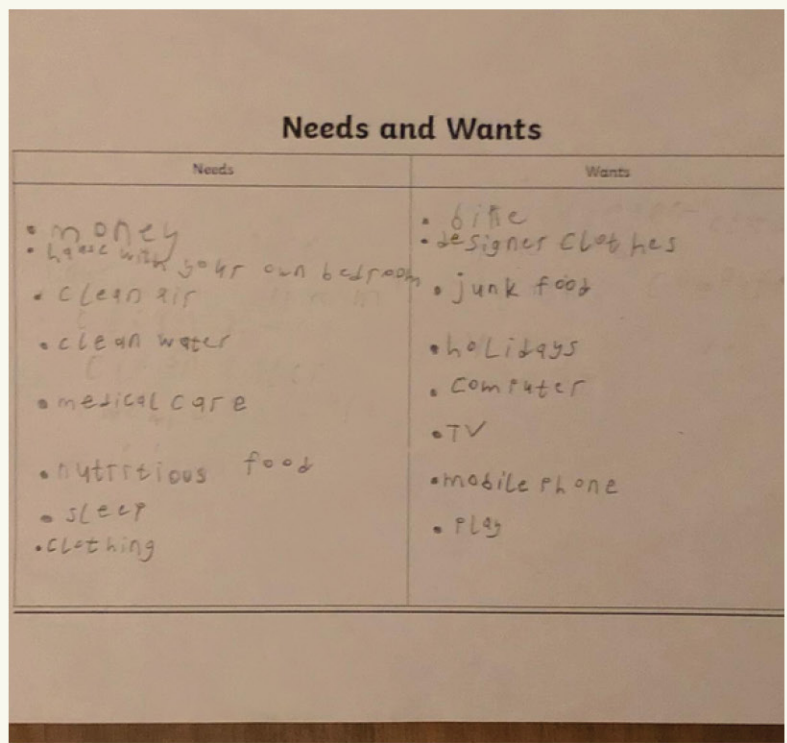 Needs and Wants
Needs
• money
• house with your own bedroom
• clean air
• clean water
• medical care
• nutritious food
• sleep
• clothing
Wants
• bike
• designer clothes
• junk food
• holidays
• computer
• TV
• mobile phone
• play